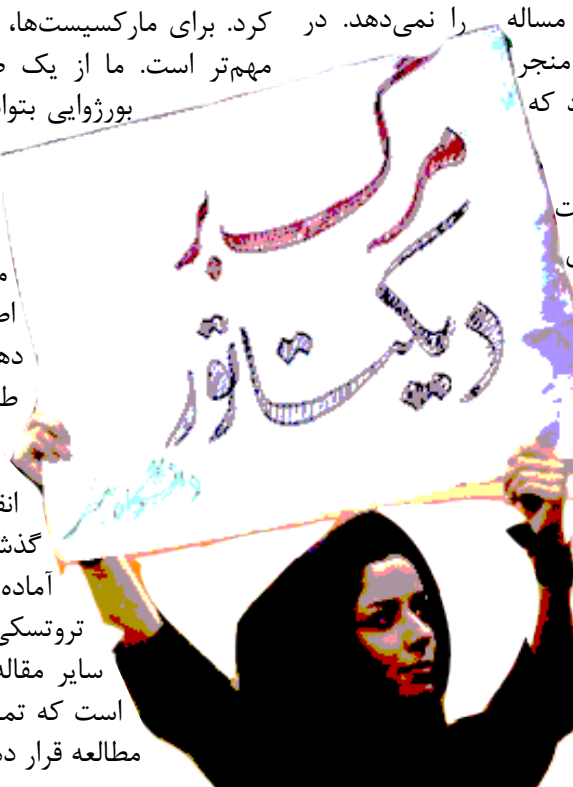 مساله را نمی‌دهد. در
منجر
د که
ت
کرد. برای مارکسیست‌ها،
مهم‌تر است. ما از یک
بورژوایی بتوا
مرگ بر
دیکتاتور
دانشگاه هنر
م
دهـ
ط
انقـ
گذشـ
آماده
تروتسکی
سایر مقاله
است که تمـ
مطالعه قرار ده